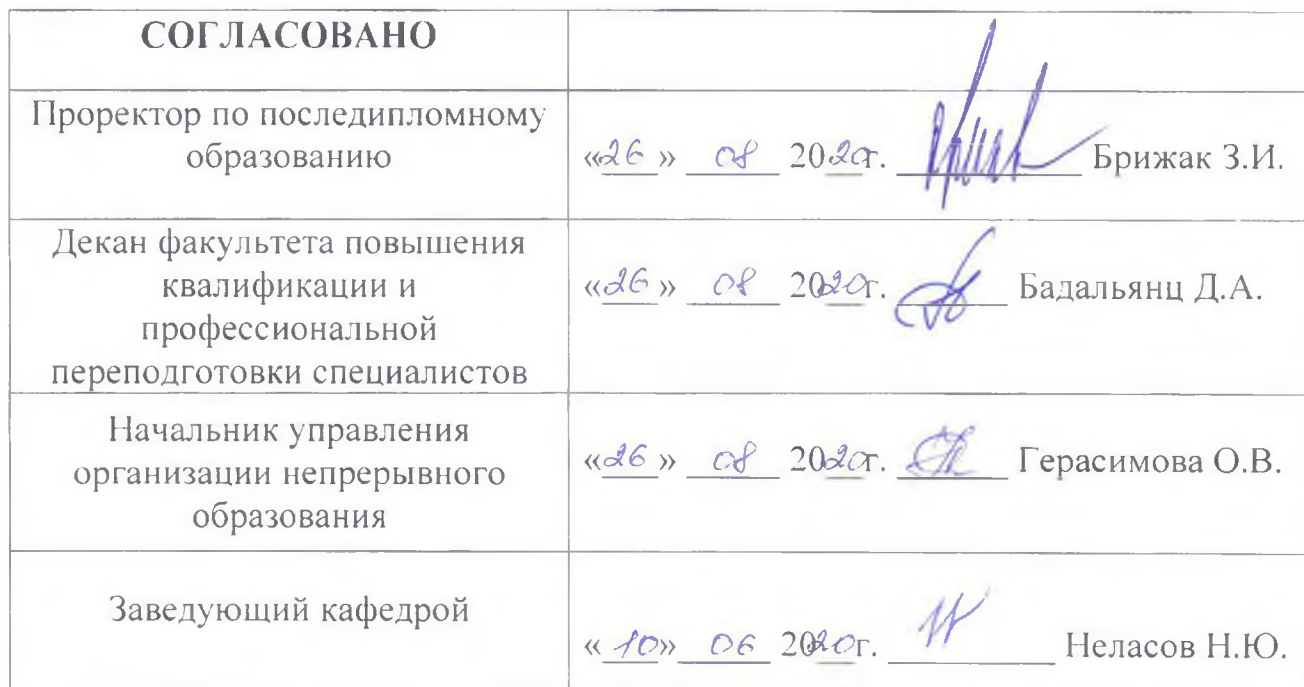 СОГЛАСОВАНО
Проректор по последипломному
образованию
«26» 08 2020г. Брижак З.И.
Декан факультета повышения
квалификации и
профессиональной
переподготовки специалистов
«26» 08 2020г. Бадальянц Д.А.
Начальник управления
организации непрерывного
образования
«26» 08 2020г. Герасимова О.В.
Заведующий кафедрой
«10» 06 2020г. Неласов Н.Ю.